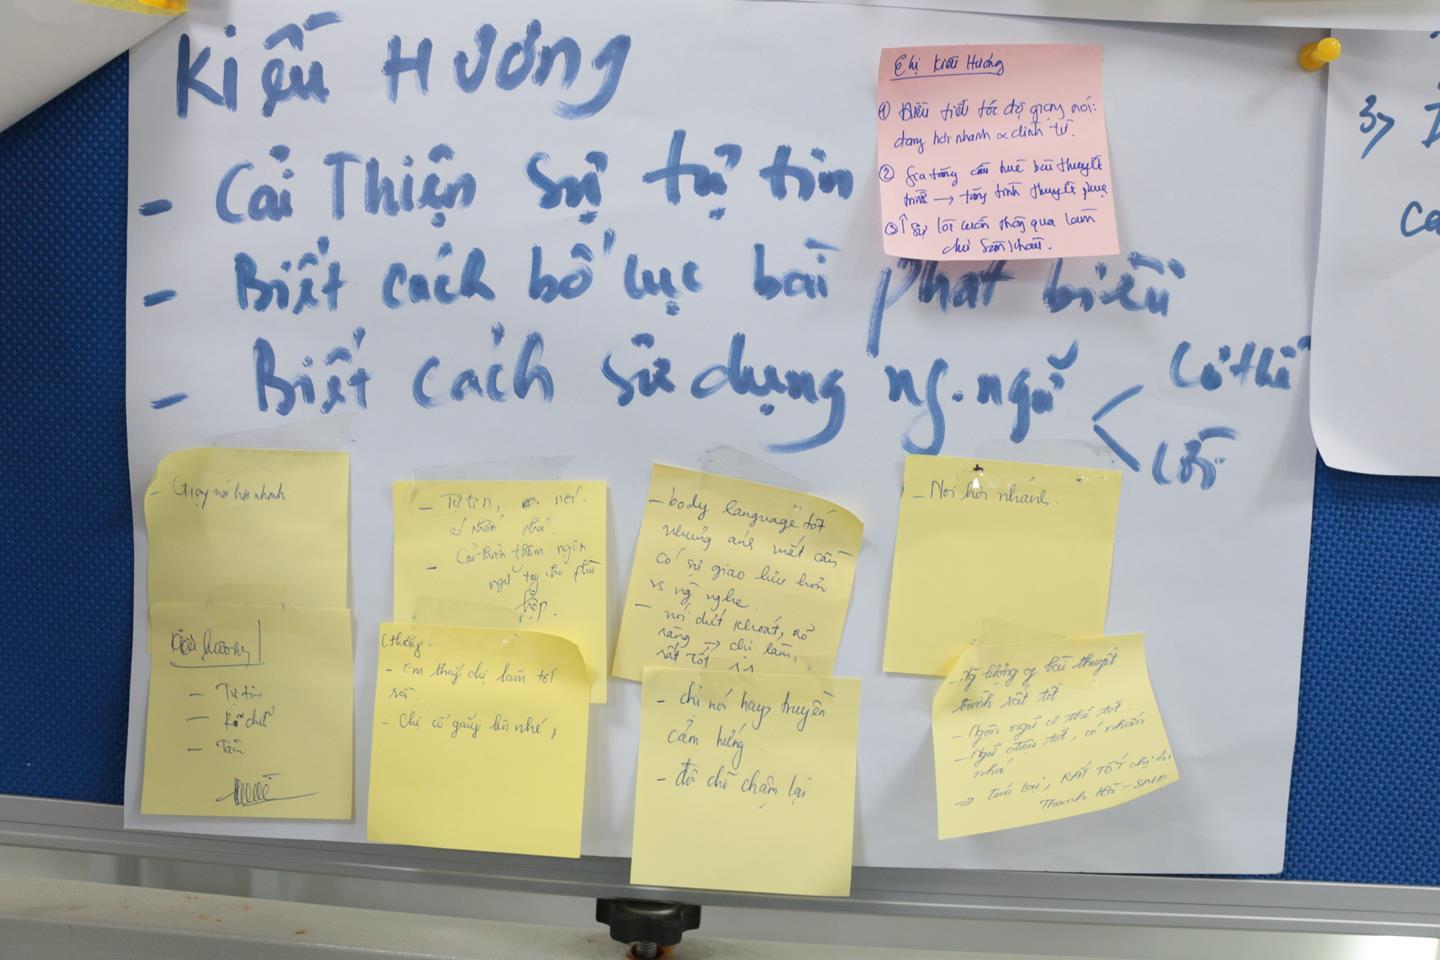 Kiều Hương
- Cải Thiện sự tự tin
- Biết cách bố cục bài phát biểu
- Biết cách sử dụng ng.ngữ < Cơ thể
Lời
Chị Kiều Hương
① Điều tiết tốc độ giọng nói:
đang hơi nhanh
② Gia tăng cấu trúc bài thuyết
trình → tăng tính thuyết phục
③ ↑ sự lôi cuốn thông qua làm
chủ sân khấu.
- Giọng nói hơi nhanh
- Tự tin, nói
có nhấn nhá.
- Cải thiện thêm ngôn
ngữ tay cho phù
hợp.
- body language tốt
nhưng ánh mắt cần
có sự giao lưu hơn
vs ng nghe.
- nói dứt khoát, rõ
ràng → chị làm
rất tốt
- Nói hơi nhanh.
Kiều Hương
- Tự tin
-
- Tâm
- Em thấy chị làm tốt
rồi.
- Chị cố gắng lên nhé,
- chị nói hay, truyền
cảm hứng
- đôi chỗ chậm lại
- Ý tưởng bài thuyết
trình rất tốt
- Ngôn ngữ cơ thể tốt.
- Ngữ điệu tốt, có nhấn
nhá
→ Tóm lại, RẤT TỐT chị ạ
Thanh Hà - SMD
3>